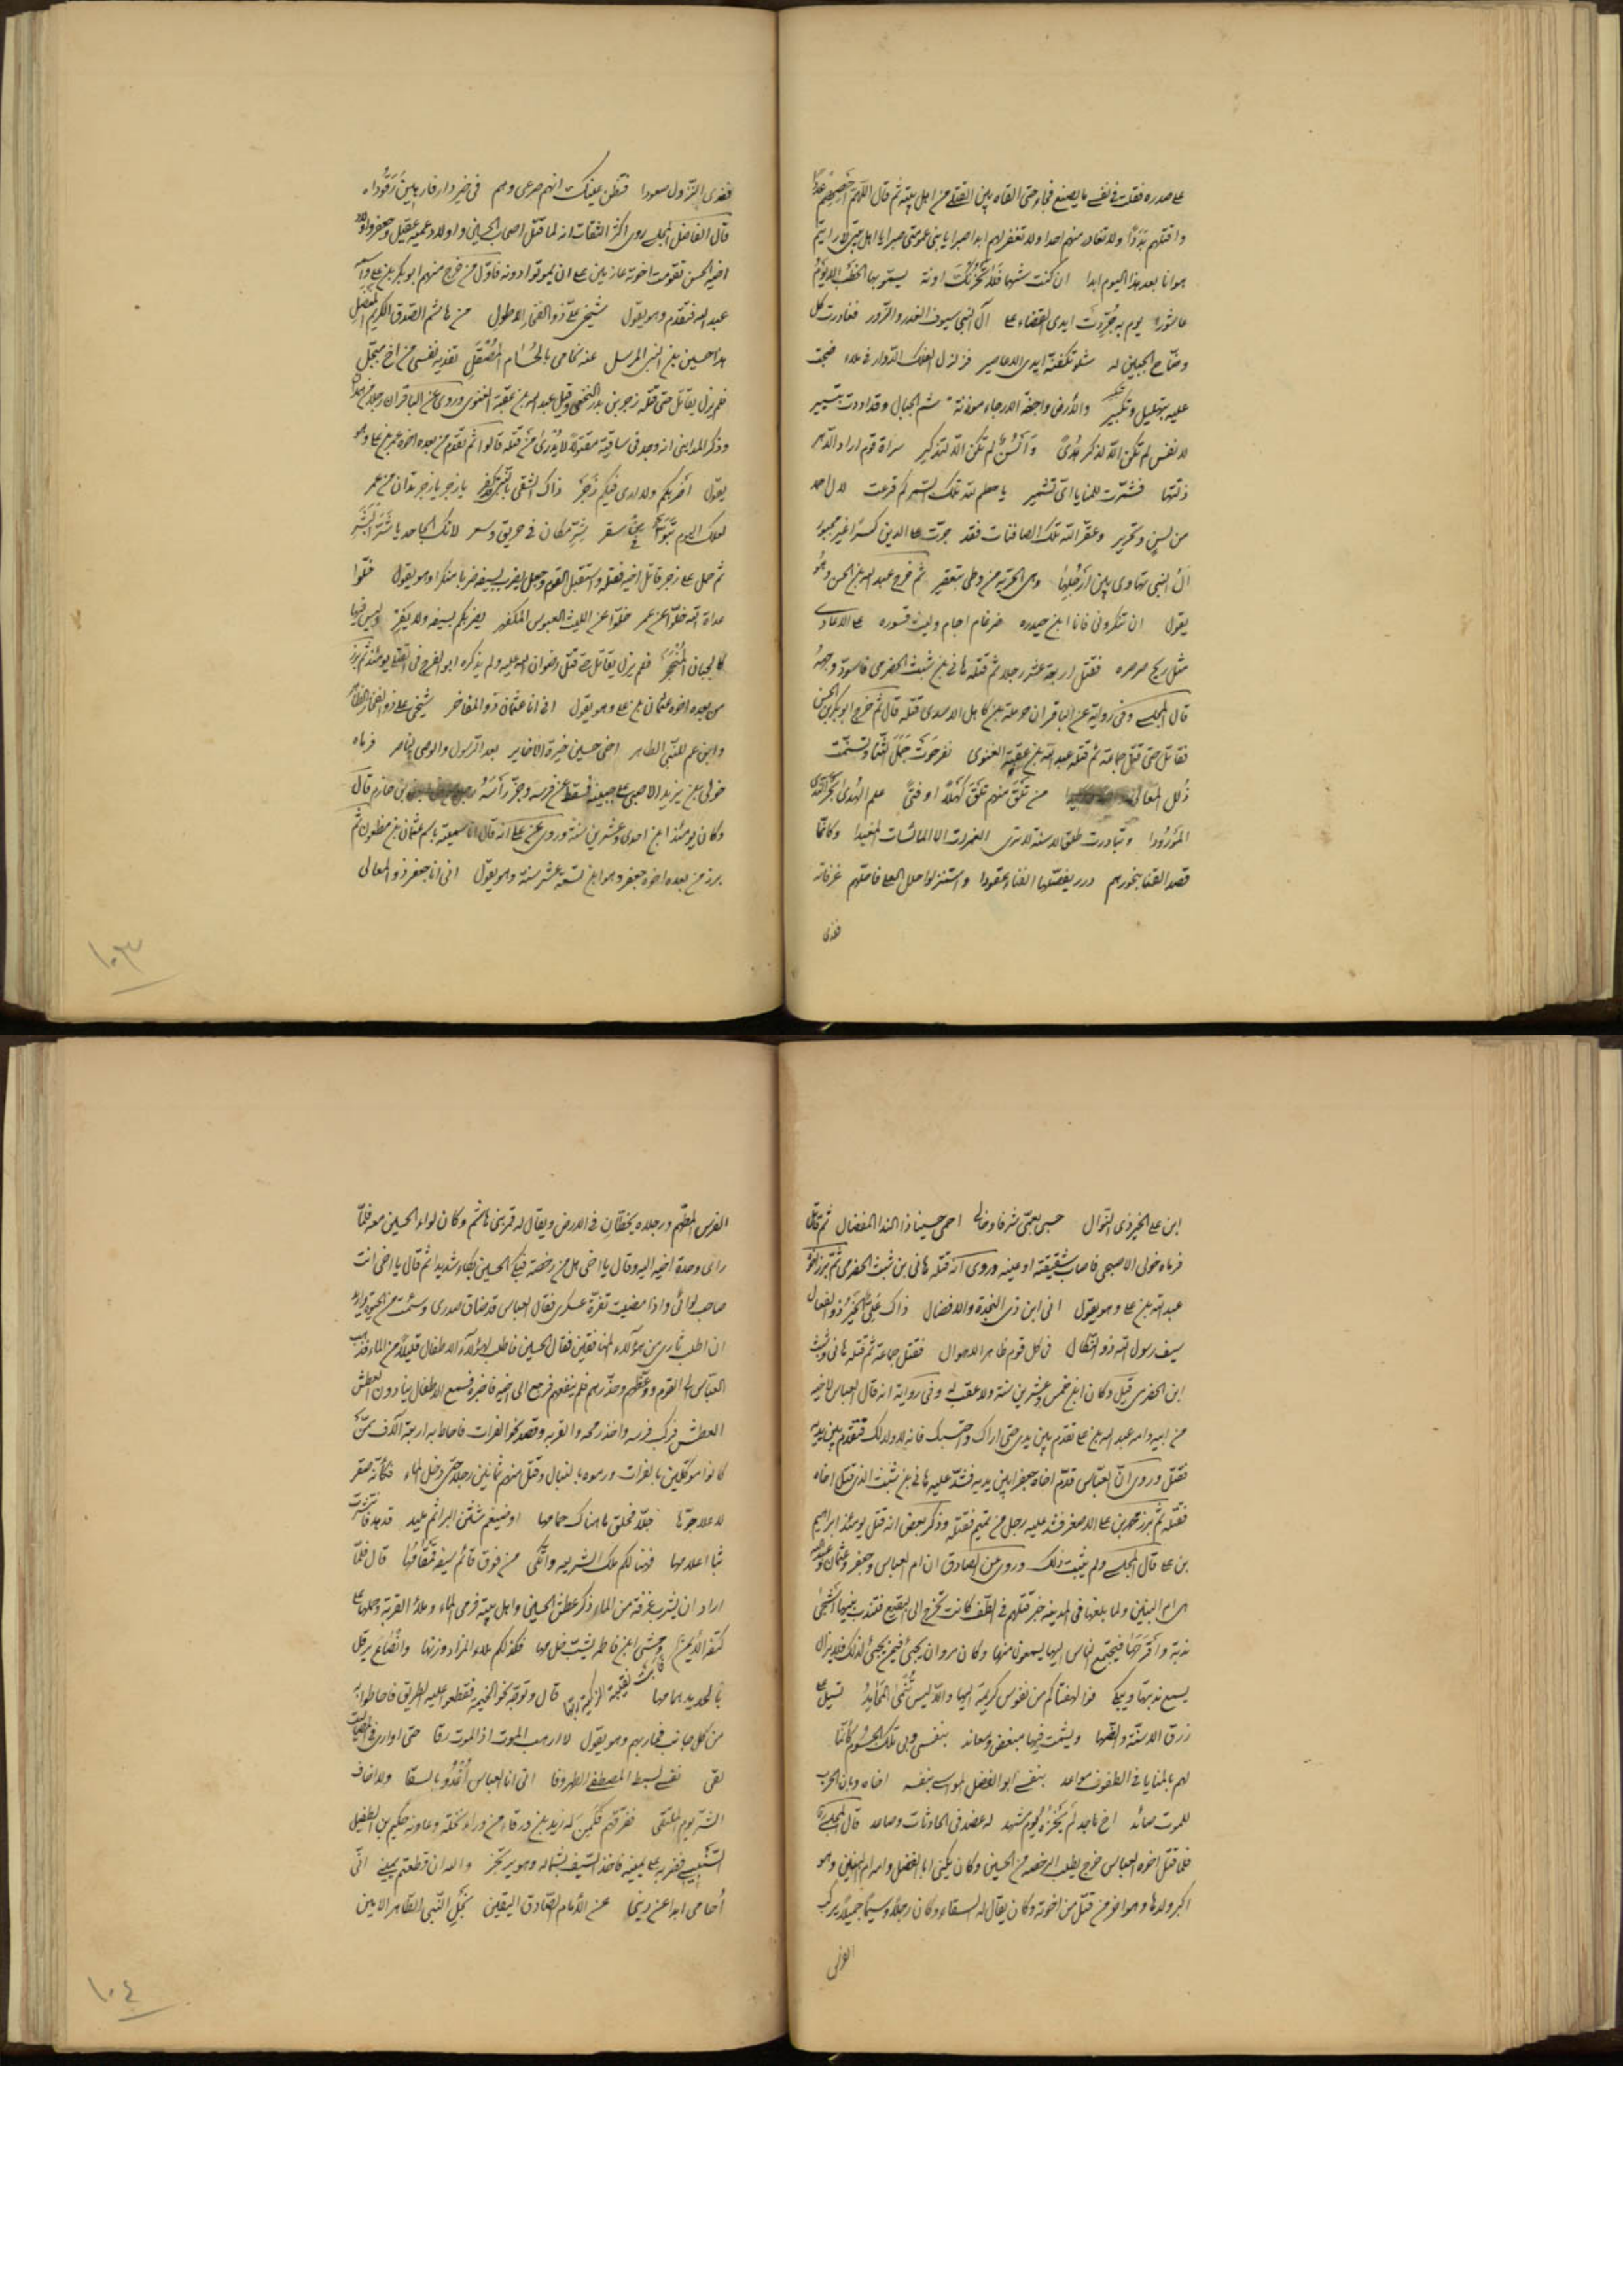 على صدره فقلت في نفسي ما يصنع فجاء حتى القاه بين القتلى من اهل بيته ثم قال اللهم احصهم عددا
واقتلهم بددا ولا تغادر منهم احدا ولا تغفر لهم ابدا صبرا يا بني عمومتي صبرا يا اهل بيتي لا رايتم
هوانا بعد هذا اليوم ابدا ان كنت
عاشورا يوم به جردت ايدي القضاء على آل النبي سيوف الغدر والزور فغادرت كل
وضاح الجبين له شلو تكفنه ايدي الاعاصير فزلزل الفلك الدوار
عليه بتهليل وتكبير والأرض واجفة الارجاء شم الجبال وقد اودت بتسيير
لا نفس لم تكن الا لذكر هدى وألسن لم تكن الا لتذكير سراة قوم اراد الدهر
ذلتها فشمرت للمنايا اي تشمير
عقر الله تلك الصافنات فقد جرت على الدين كسرا غير مجبور
آل النبي تهاوى بين ارجلها ثم خرج عبد الله بن الحسن وهو
يقول ان تنكروني فانا ابن حيدره ضرغام اجام وليث قسوره على الاعادي
مثل ريح صرصره فقتل اربعة عشر رجلا ثم قتله هاني بن شبث الحضرمي فاسود وجهه
قال المجلسي وفي رواية عن الباقر ان حرملة بن كاهل الاسدي قتله قال ثم خرج ابو بكر بن الحسن
فقاتل حتى قتل جماعة ثم قتله عبد الله بن عقبة الغنوي
ذلل المعالي من تلق منهم تلق كهلا او فتى علم الهدى بحر الندى
المورودا وتبادرت طلق الاسنة لا ترى الغمرات الا المائسات الغيدا وكانما
قصد القنا بنحورهم درر يفصلها الفناء عقودا واستنزلوا حلل العلى فاحلهم غرفاته
فغدى
فغدى النزول صعودا فتظن عينك انهم صرعى وهم في خير دار فارهين رقودا
قال الفاضل المجلسي روى اكثر الثقات انه لما قتل اصحاب الحسين واولاد عميه عقيل وجعفر واولاد
اخيه الحسن تقومت اخوته عازمين على ان يموتوا دونه فاول من خرج منهم ابو بكر بن علي
عبد الله فتقدم وهو يقول شيخي علي ذو الفخار الاطول من هاشم الصدق الكريم المفضل
هذا حسين بن النبي المرسل عنه نحامي بالحسام المصقل تفديه نفسي من اخ مبجل
فلم يزل يقاتل حتى قتله زجر بن بدر النخعي وقيل عبد الله بن عقبة الغنوي وروى عن الباقر ان رجلا من همدان
وذكر المدايني انه وجد في ساقية مقتولا لا يدرى من قتله قالوا ثم تقدم من بعده اخوه عمر بن علي وهو
يقول اضربكم ولا ارى فيكم زجر ذاك الشقي بالنبي قد كفر يا زجر يا زجر تدان من عمر
لعلك اليوم تبوأ من سقر شر مكان في حريق وسعر لانك الجاحد يا شر البشر
ثم حمل على زجر قاتل اخيه فقتله واستقبل القوم وجعل يضرب بسيفه ضربا منكرا وهو يقول خلوا
عداة الله خلوا عن عمر خلوا عن الليث العبوس المكفهر يضربكم بسيفه ولا يفر وليس فيها
كالجبان المنجحر فلم يزل يقاتل حتى قتل رضوان الله عليه ولم يذكره ابو الفرج في القتلى يومئذ ثم برز
من بعده اخوه عثمان بن علي وهو يقول اني انا عثمان ذو المفاخر شيخي علي ذو الفخار الظاهر
وابن عم للنبي الطاهر اخي حسين خيرة الاخاير بعد الرسول والوصي الناصر فرماه
خولي بن يزيد الاصبحي على جبينه فسقط عن فرسه وجز رأسه بن حازم قال
وكان يومئذ ابن احدى وعشرين سنة وروى عن علي انه قال انما سميته باسم عثمان بن مظعون ثم
برز من بعده اخوه جعفر وهو ابن تسعة عشر سنة وهو يقول اني انا جعفر ذو المعالي
١٠٣
ابن علي الخير ذي النوال حسبي بعمي شرفا وخالي احمي حسينا ذا الندا المفضال ثم قاتل
فرماه خولي الاصبحي فاصاب شقيقته او عينه وروى انه قتله هاني بن شبث الحضرمي ثم برز اخوه
عبد الله بن علي وهو يقول اني ابن ذي النجدة والافضال ذاك علي الخير ذو الفعال
سيف رسول الله ذو النكال في كل قوم ظاهر الاهوال فقتل جماعة ثم قتله هاني بن شبث
ابن الحضرمي قيل وكان ابن خمس وعشرين سنة ولا عقب له وفي رواية انه قال العباس لاخيه
من ابيه وامه عبد الله بن علي تقدم بين يدي حتى اراك واحتسبك فانه لا ولد لك فتقدم بين يديه
فقتل وروى ان العباس قدم اخاه جعفرا بين يديه فشد عليه هاني بن شبث الذي قتل اخاه
فقتله ثم برز محمد بن علي الاصغر فشد عليه رجل من تميم فقتله وذكر بعض انه قتل يومئذ ابراهيم
بن علي قال المجلسي ولم يثبت ذلك وروى عن الصادق ان ام العباس وجعفر وعثمان وعبد الله
هي ام البنين ولما بلغها في المدينه خبر قتلهم في الطف كانت تخرج الى البقيع فتندب بنيها اشجى
ندبة واقرحها فيجتمع الناس اليها يسمعون منها وكان مروان يجيئ فيمن يجيئ لذلك فلا يزال
يسمع ندبتها ويبكي فوا لهفتاكم من نفوس كريمة
زرق الاسنة ويشمت فيها مبغض ومعاند بنفسي وبي تلك الجسوم كأنما
لهم بالمنايا في الطفوف مواعد بنفسي أبو الفضل المواسي بنفسه اخاه
للموت صائد اخ ماجد لم يخزه يوم مشهد له عضد في الحادثات وساعد قال المجلسي
فلما قتل اخوه العباس خرج يطلب الرخصه من الحسين وكان يكنى ابا الفضل وامه ام البنين وهو
اكبر ولدها وهو اخر من قتل من اخوته وكان يقال له السقاء وكان رجلا وسيما جميلا يركب
الفرس
الفرس المطهم ورجلاه يخطان في الارض ويقال له قمر بني هاشم وكان لواء الحسين معه فلما
راى وحدة اخيه اتى اليه وقال يا اخي هل من رخصة فبكى الحسين بكاء شديدا ثم قال يا اخي انت
صاحب لوائي واذا مضيت تفرق عسكري فقال العباس قد ضاق صدري وسئمت من الحيوة واريد
ان اطلب ثاري من هؤلاء المنافقين فقال الحسين فاطلب لهؤلاء الاطفال قليلا من الماء فذهب
العباس الى القوم ووعظهم وحذرهم فلم ينفعهم فرجع الى اخيه فاخبره فسمع الاطفال ينادون العطش
العطش فركب فرسه واخذ رمحه والقربه وقصد نحو الفرات فاحاط به اربعة آلاف ممن
كانوا موكلين بالفرات ورموه بالنبال وقتل منهم ثمانين رجلا حتى دخل الماء فكأنه صقر
من فوق قائم سيفه قال فلما
اراد ان يشرب غرفة من الماء ذكر عطش الحسين واهل بيته فرمى الماء وملأ القربة وحملها على
كتفه الأيمن
قال وتوجه نحو الخيمه فقطعوا عليه الطريق فاحاطوا به
من كل جانب فحاربهم وهو يقول لا ارهب الموت اذا الموت رقا حتى اوارى في المصاليت
لقى نفسي لسبط المصطفى الطهر وقا اني انا العباس أغدو بالسقا ولا اخاف
الشر يوم الملتقى ففرقهم فكمن له زيد بن ورقاء من وراء نخلة وعاونه حكيم بن الطفيل
السنبسي فضربه على يمينه فاخذ السيف بشماله وهو يرتجز والله ان قطعتم يميني اني
أحامي ابدا عن ديني وعن الأمام الصادق اليقين نجل النبي الطاهر الامين
١٠٤